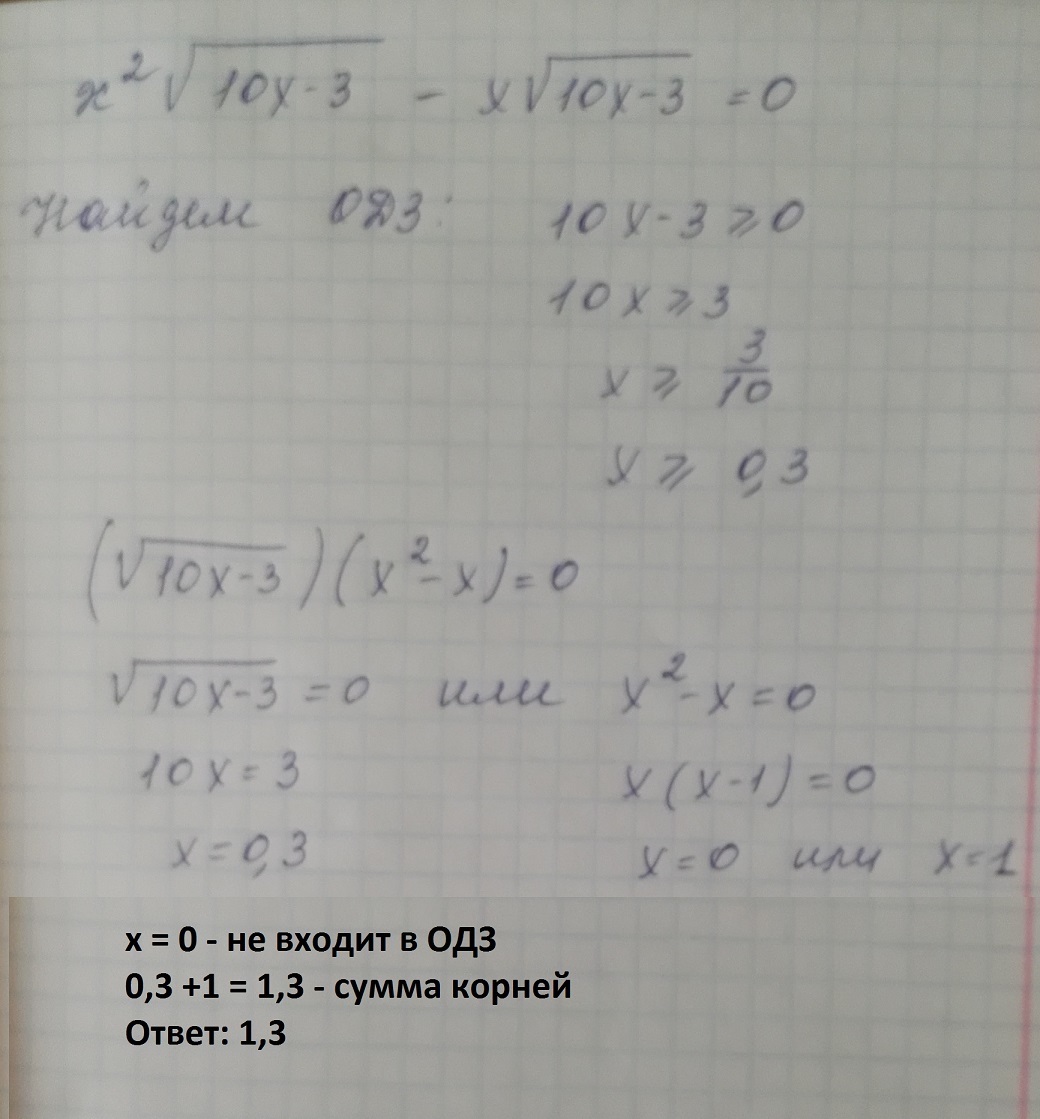 x² √10x-3 - x√10x-3 = 0
Найдем ОДЗ: 10x-3 ⩾ 0
10x ⩾ 3
x ⩾ 3/10
x ⩾ 0,3
(√10x-3)(x²-x)=0
√10x-3 = 0 или x²-x=0
10x = 3 x(x-1)=0
x=0,3 x=0 или x=1
x = 0 - не входит в ОДЗ
0,3 +1 = 1,3 - сумма корней
Ответ: 1,3